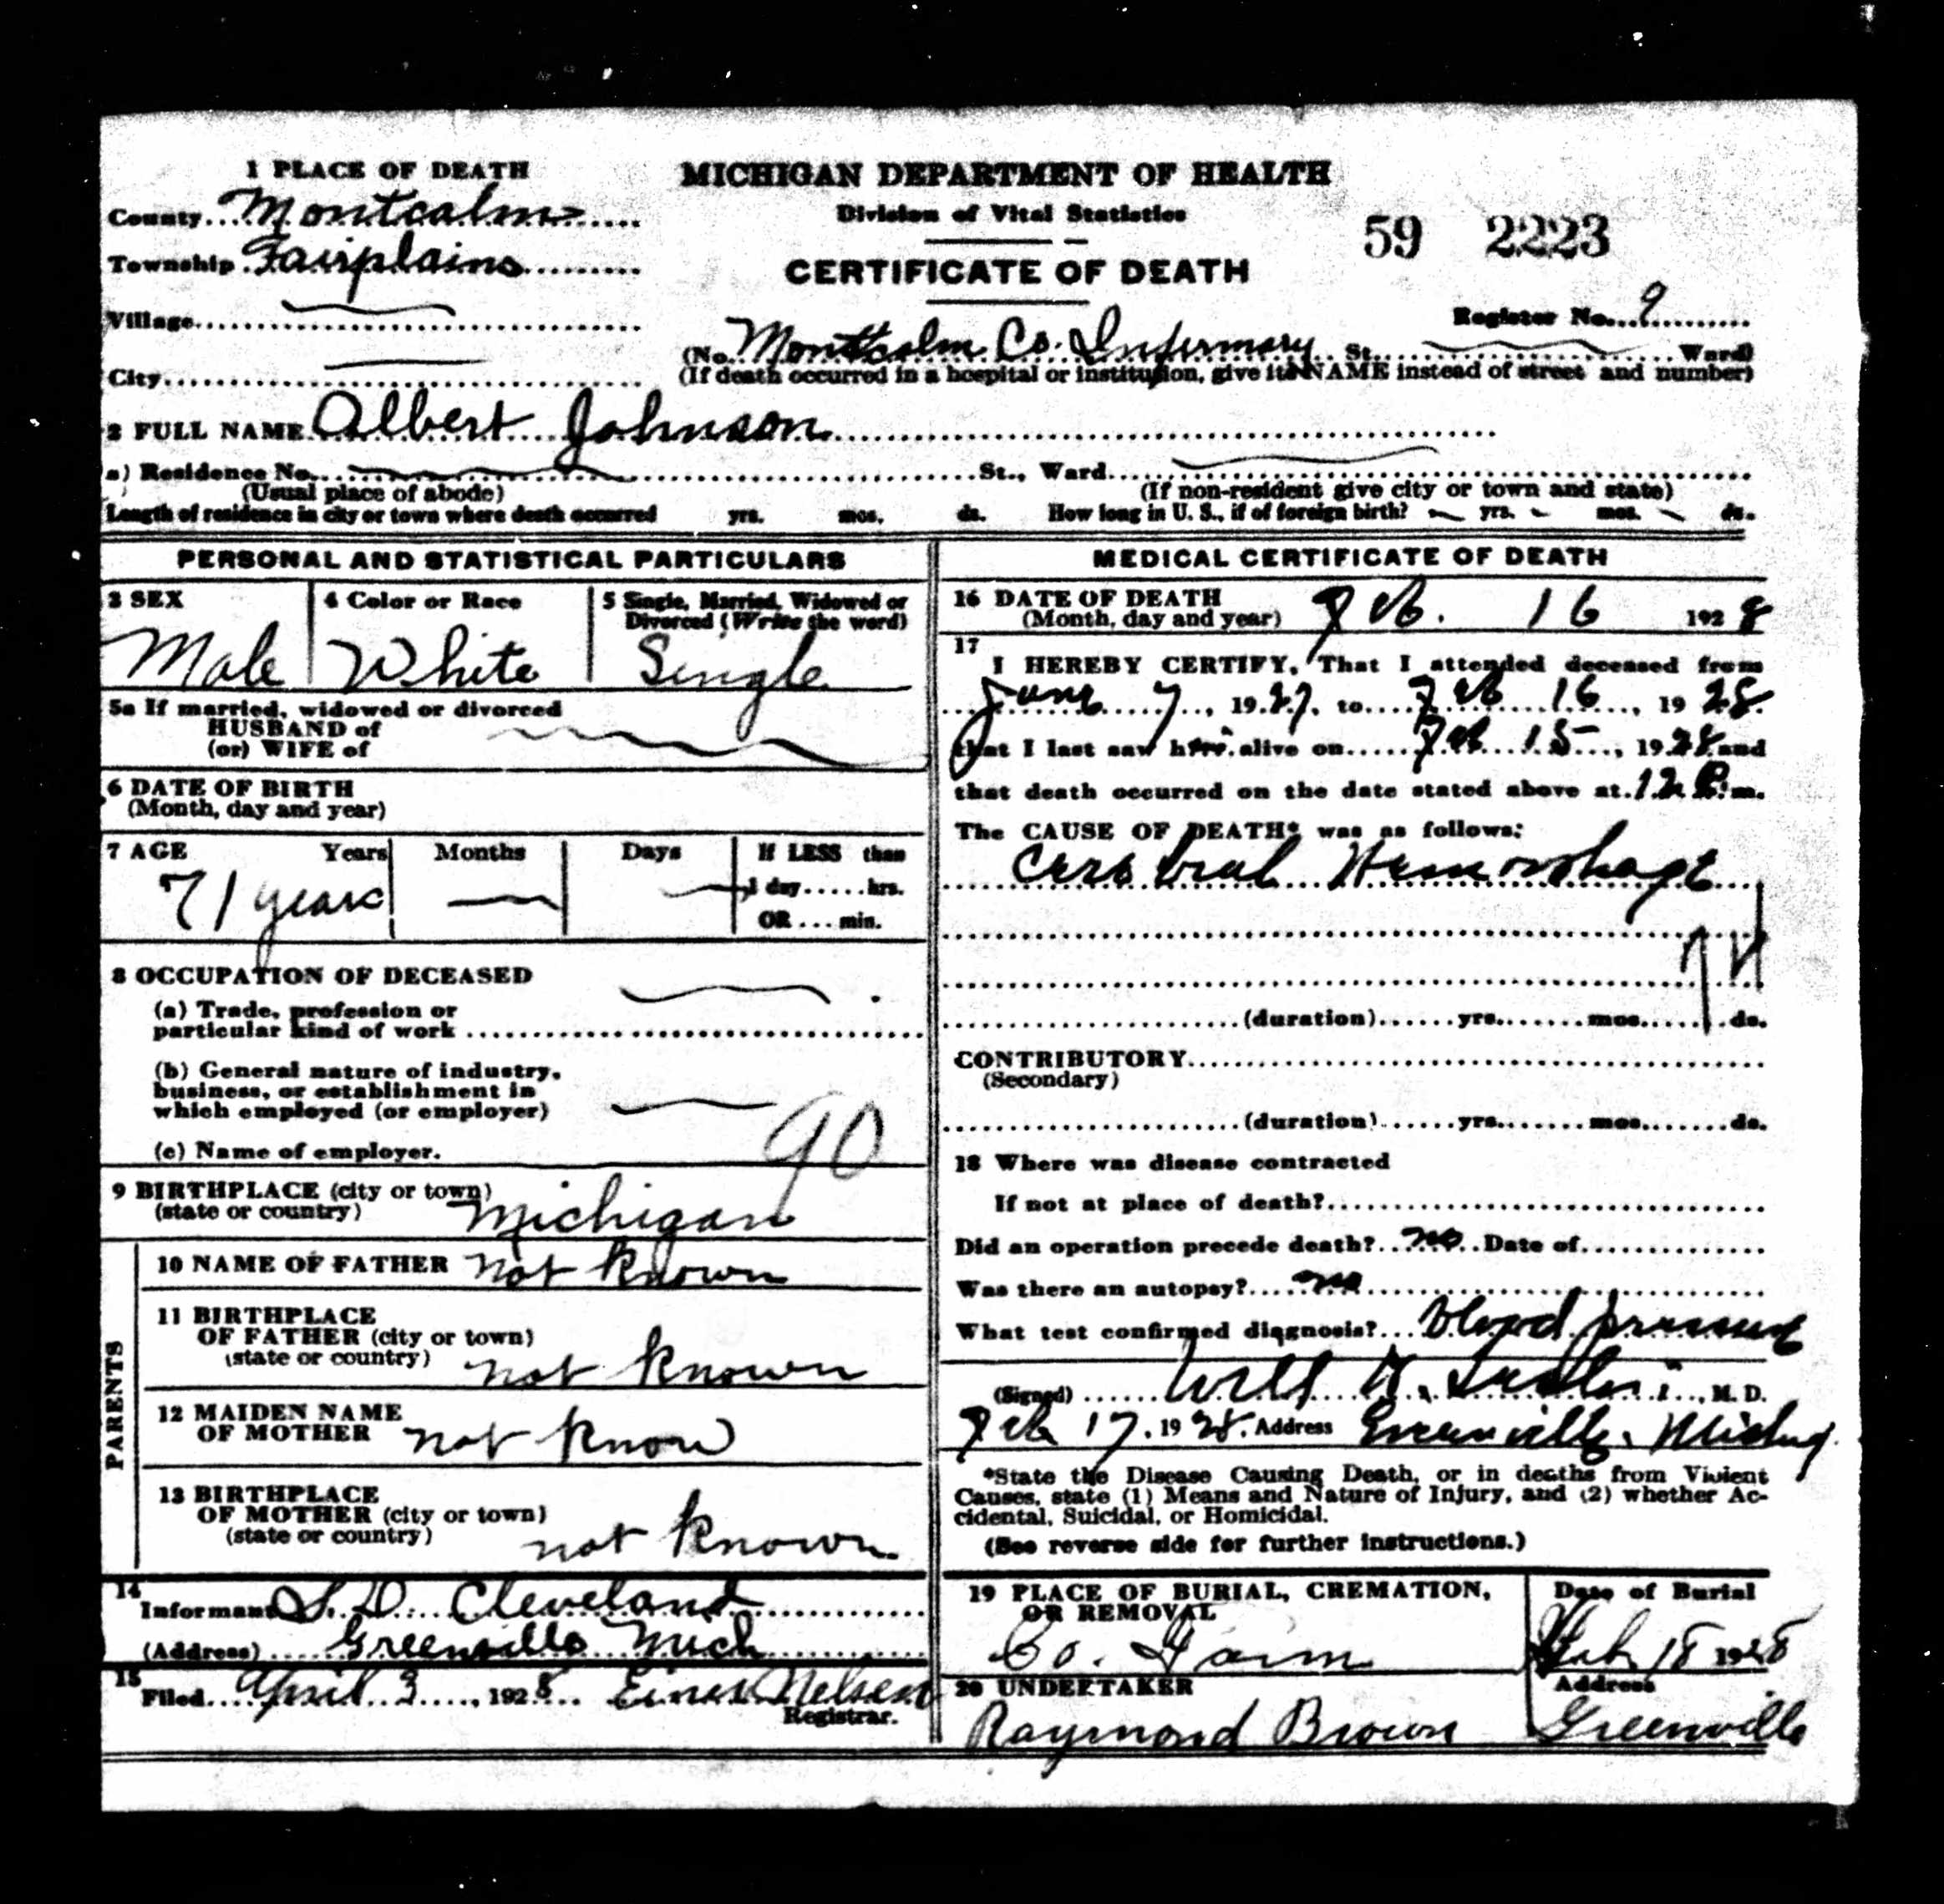 1 PLACE OF DEATH
County Montcalm
Township Fairplains
Village
City
MICHIGAN DEPARTMENT OF HEALTH
Division of Vital Statistics
CERTIFICATE OF DEATH
59 2223
Register No. 9
(No. Montcalm Co. Infermary St. Ward)
(If death occurred in a hospital or institution, give its NAME instead of street and number)
2 FULL NAME Albert Johnson
a) Residence No. St., Ward
(Usual place of abode) (If non-resident give city or town and state)
Length of residence in city or town where death occurred yrs. mos. ds. How long in U. S., if of foreign birth? yrs. mos. ds.
PERSONAL AND STATISTICAL PARTICULARS
3 SEX
Male
4 Color or Race
White
5 Single, Married, Widowed or
Divorced (Write the word)
Single
5a If married, widowed or divorced
HUSBAND of
(or) WIFE of
6 DATE OF BIRTH
(Month, day and year)
7 AGE Years Months Days If LESS than
1 day......hrs.
OR....min.
71 years
8 OCCUPATION OF DECEASED
(a) Trade, profession or
particular kind of work
(b) General nature of industry,
business, or establishment in
which employed (or employer)
(c) Name of employer.
90
9 BIRTHPLACE (city or town)
(state or country) Michigan
PARENTS
10 NAME OF FATHER not known
11 BIRTHPLACE
OF FATHER (city or town)
(state or country) not known
12 MAIDEN NAME
OF MOTHER not know
13 BIRTHPLACE
OF MOTHER (city or town)
(state or country) not known
14
Informant S. D. Cleveland
(Address) Greenville Mich
15
Filed April 3, 1928 Einer Nelsen
Registrar.
MEDICAL CERTIFICATE OF DEATH
16 DATE OF DEATH
(Month, day and year) Feb. 16 1928
17
I HEREBY CERTIFY, That I attended deceased from
June 7, 1927, to Feb 16, 1928
that I last saw him alive on Feb 15, 1928 and
that death occurred on the date stated above at 12 P. m.
The CAUSE OF DEATH* was as follows:
Cerebral Hemorrhage
74
(duration) yrs. mos. ds.
CONTRIBUTORY
(Secondary)
(duration) yrs. mos. ds.
18 Where was disease contracted
If not at place of death?
Did an operation precede death? no Date of
Was there an autopsy? no
What test confirmed diagnosis? blood pressure
(Signed) M. D.
Feb 17, 1928. Address Greenville, Michig
*State the Disease Causing Death, or in deaths from Violent
Causes, state (1) Means and Nature of Injury, and (2) whether Ac-
cidental, Suicidal, or Homicidal.
(See reverse side for further instructions.)
19 PLACE OF BURIAL, CREMATION,
OR REMOVAL
Co. Farm
Date of Burial
Feb 18 1928
20 UNDERTAKER
Raymond Brown
Address
Greenville